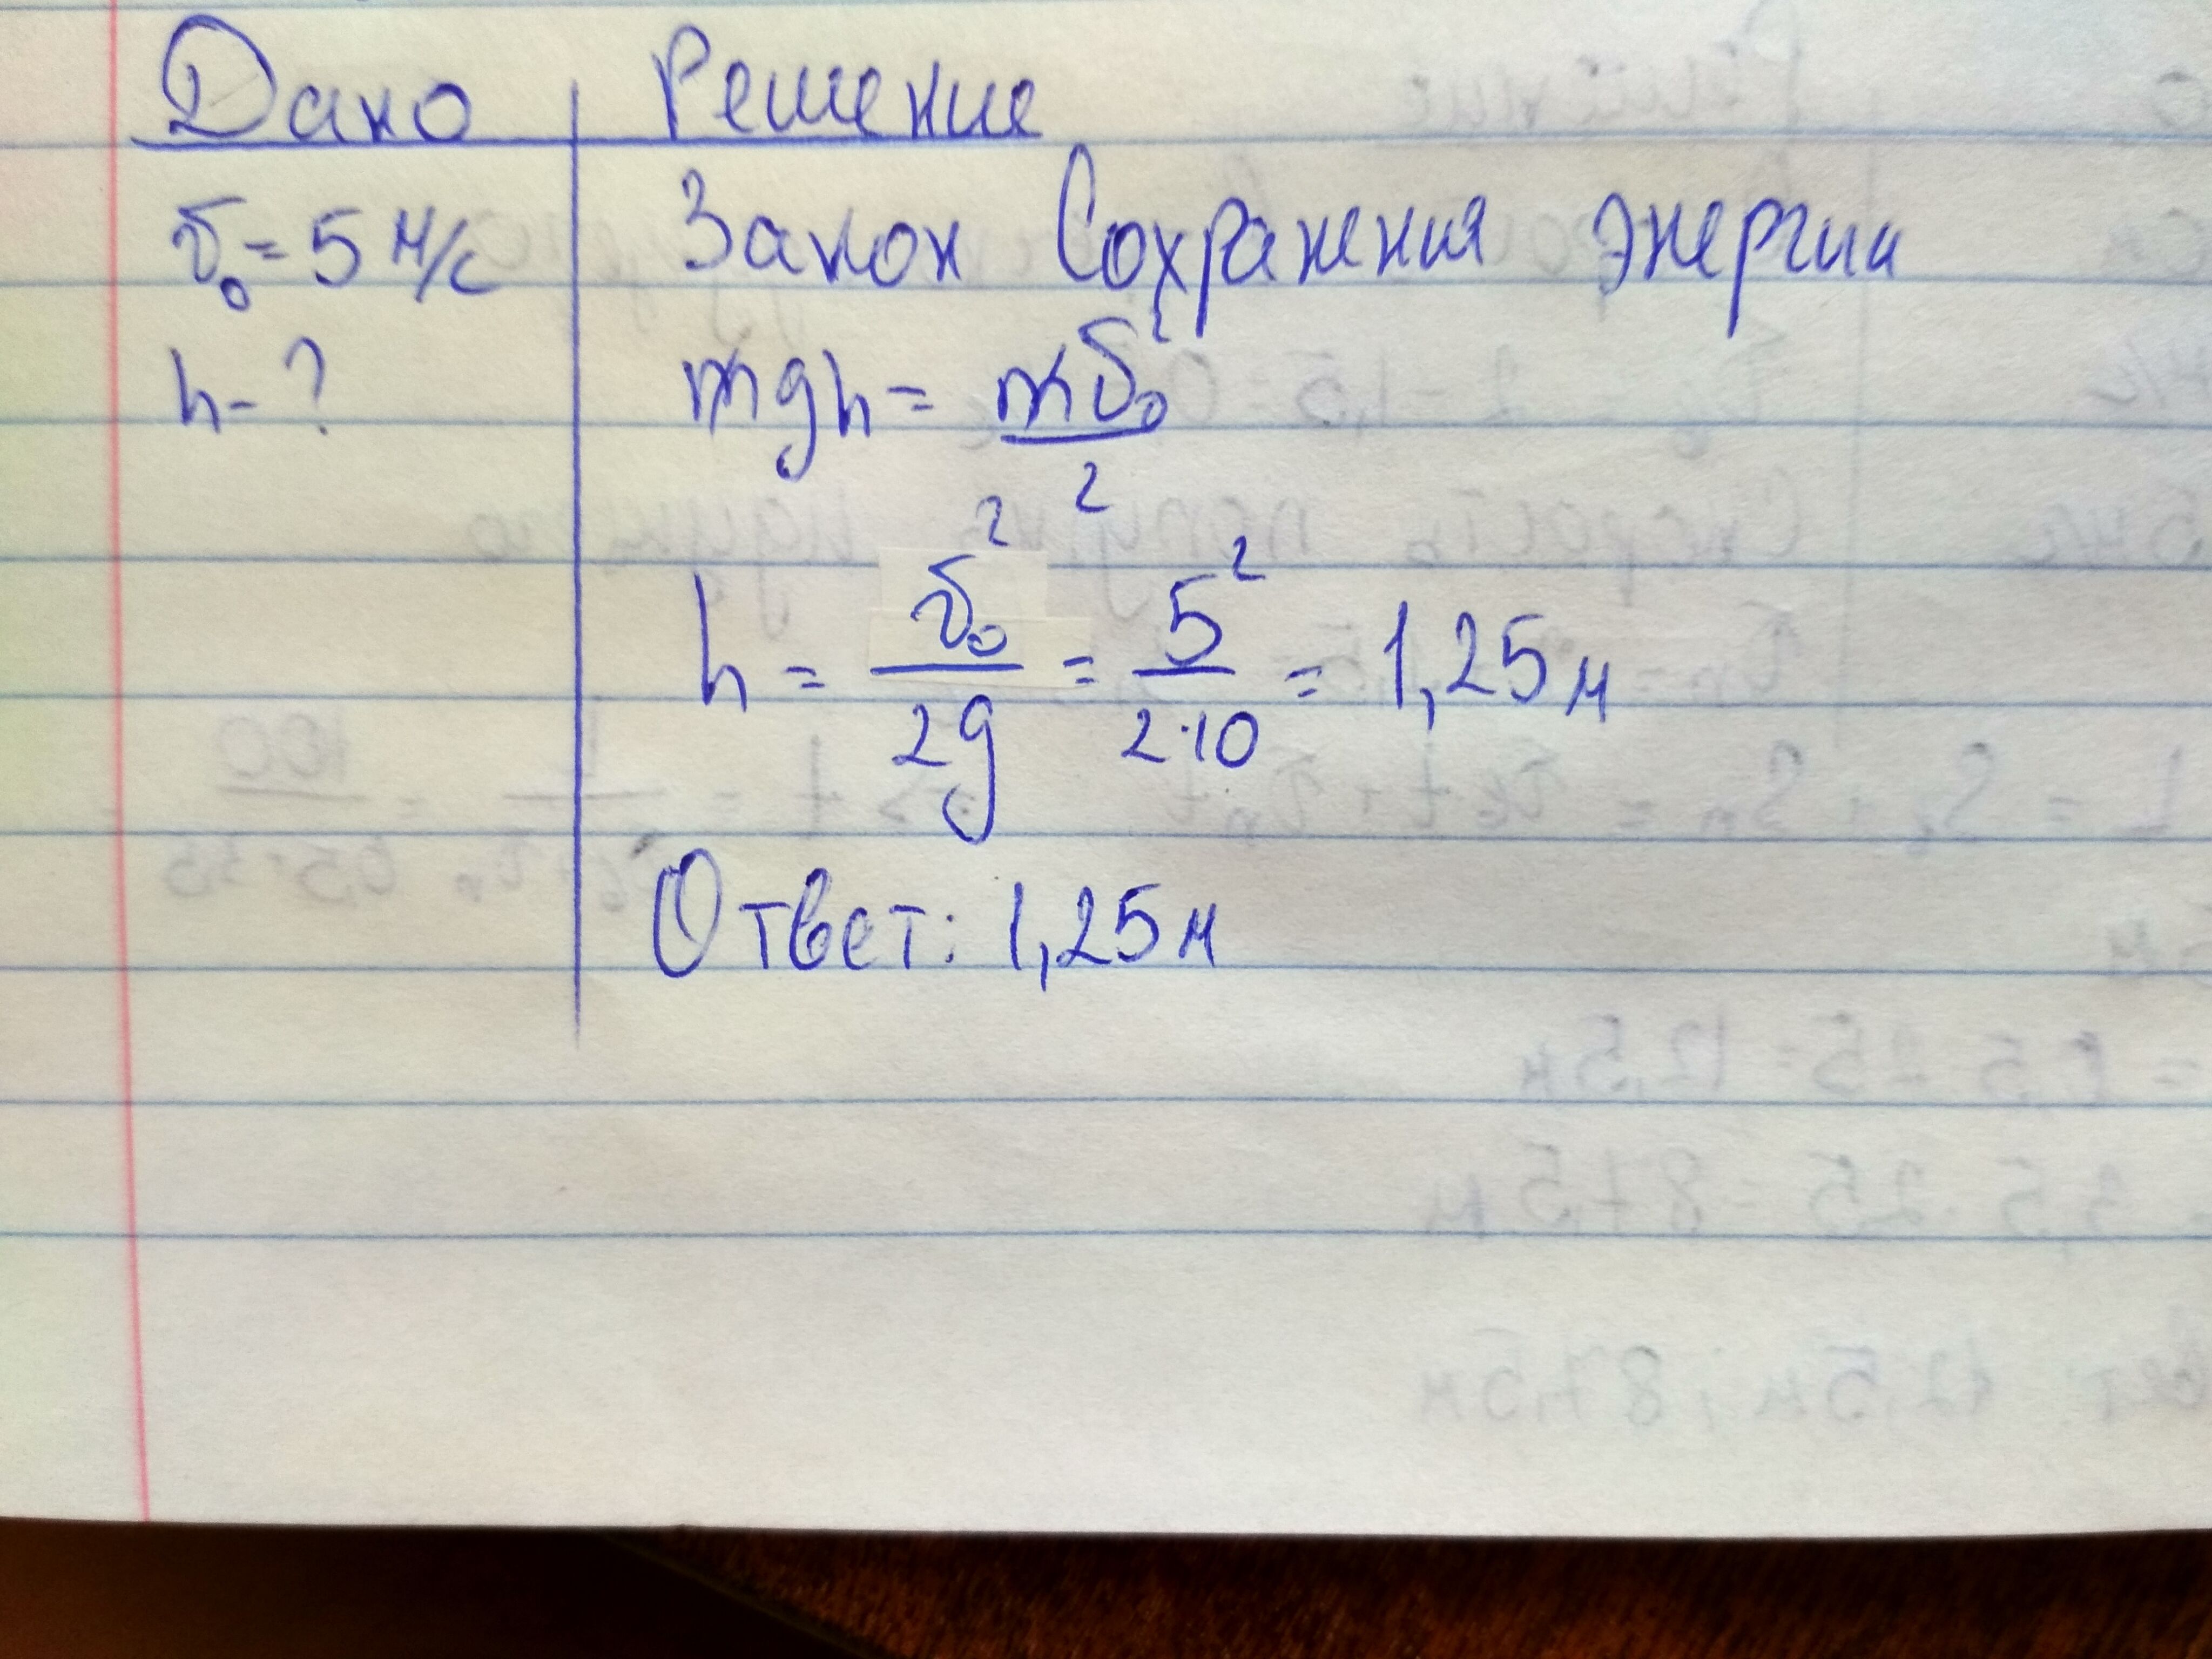 Дано Решение
v₀ = 5 м/с Закон Сохранения энергии
h - ? mgh = mv₀² / 2
h = v₀² / 2g = 5² / 2·10 = 1,25 м
Ответ: 1,25 м